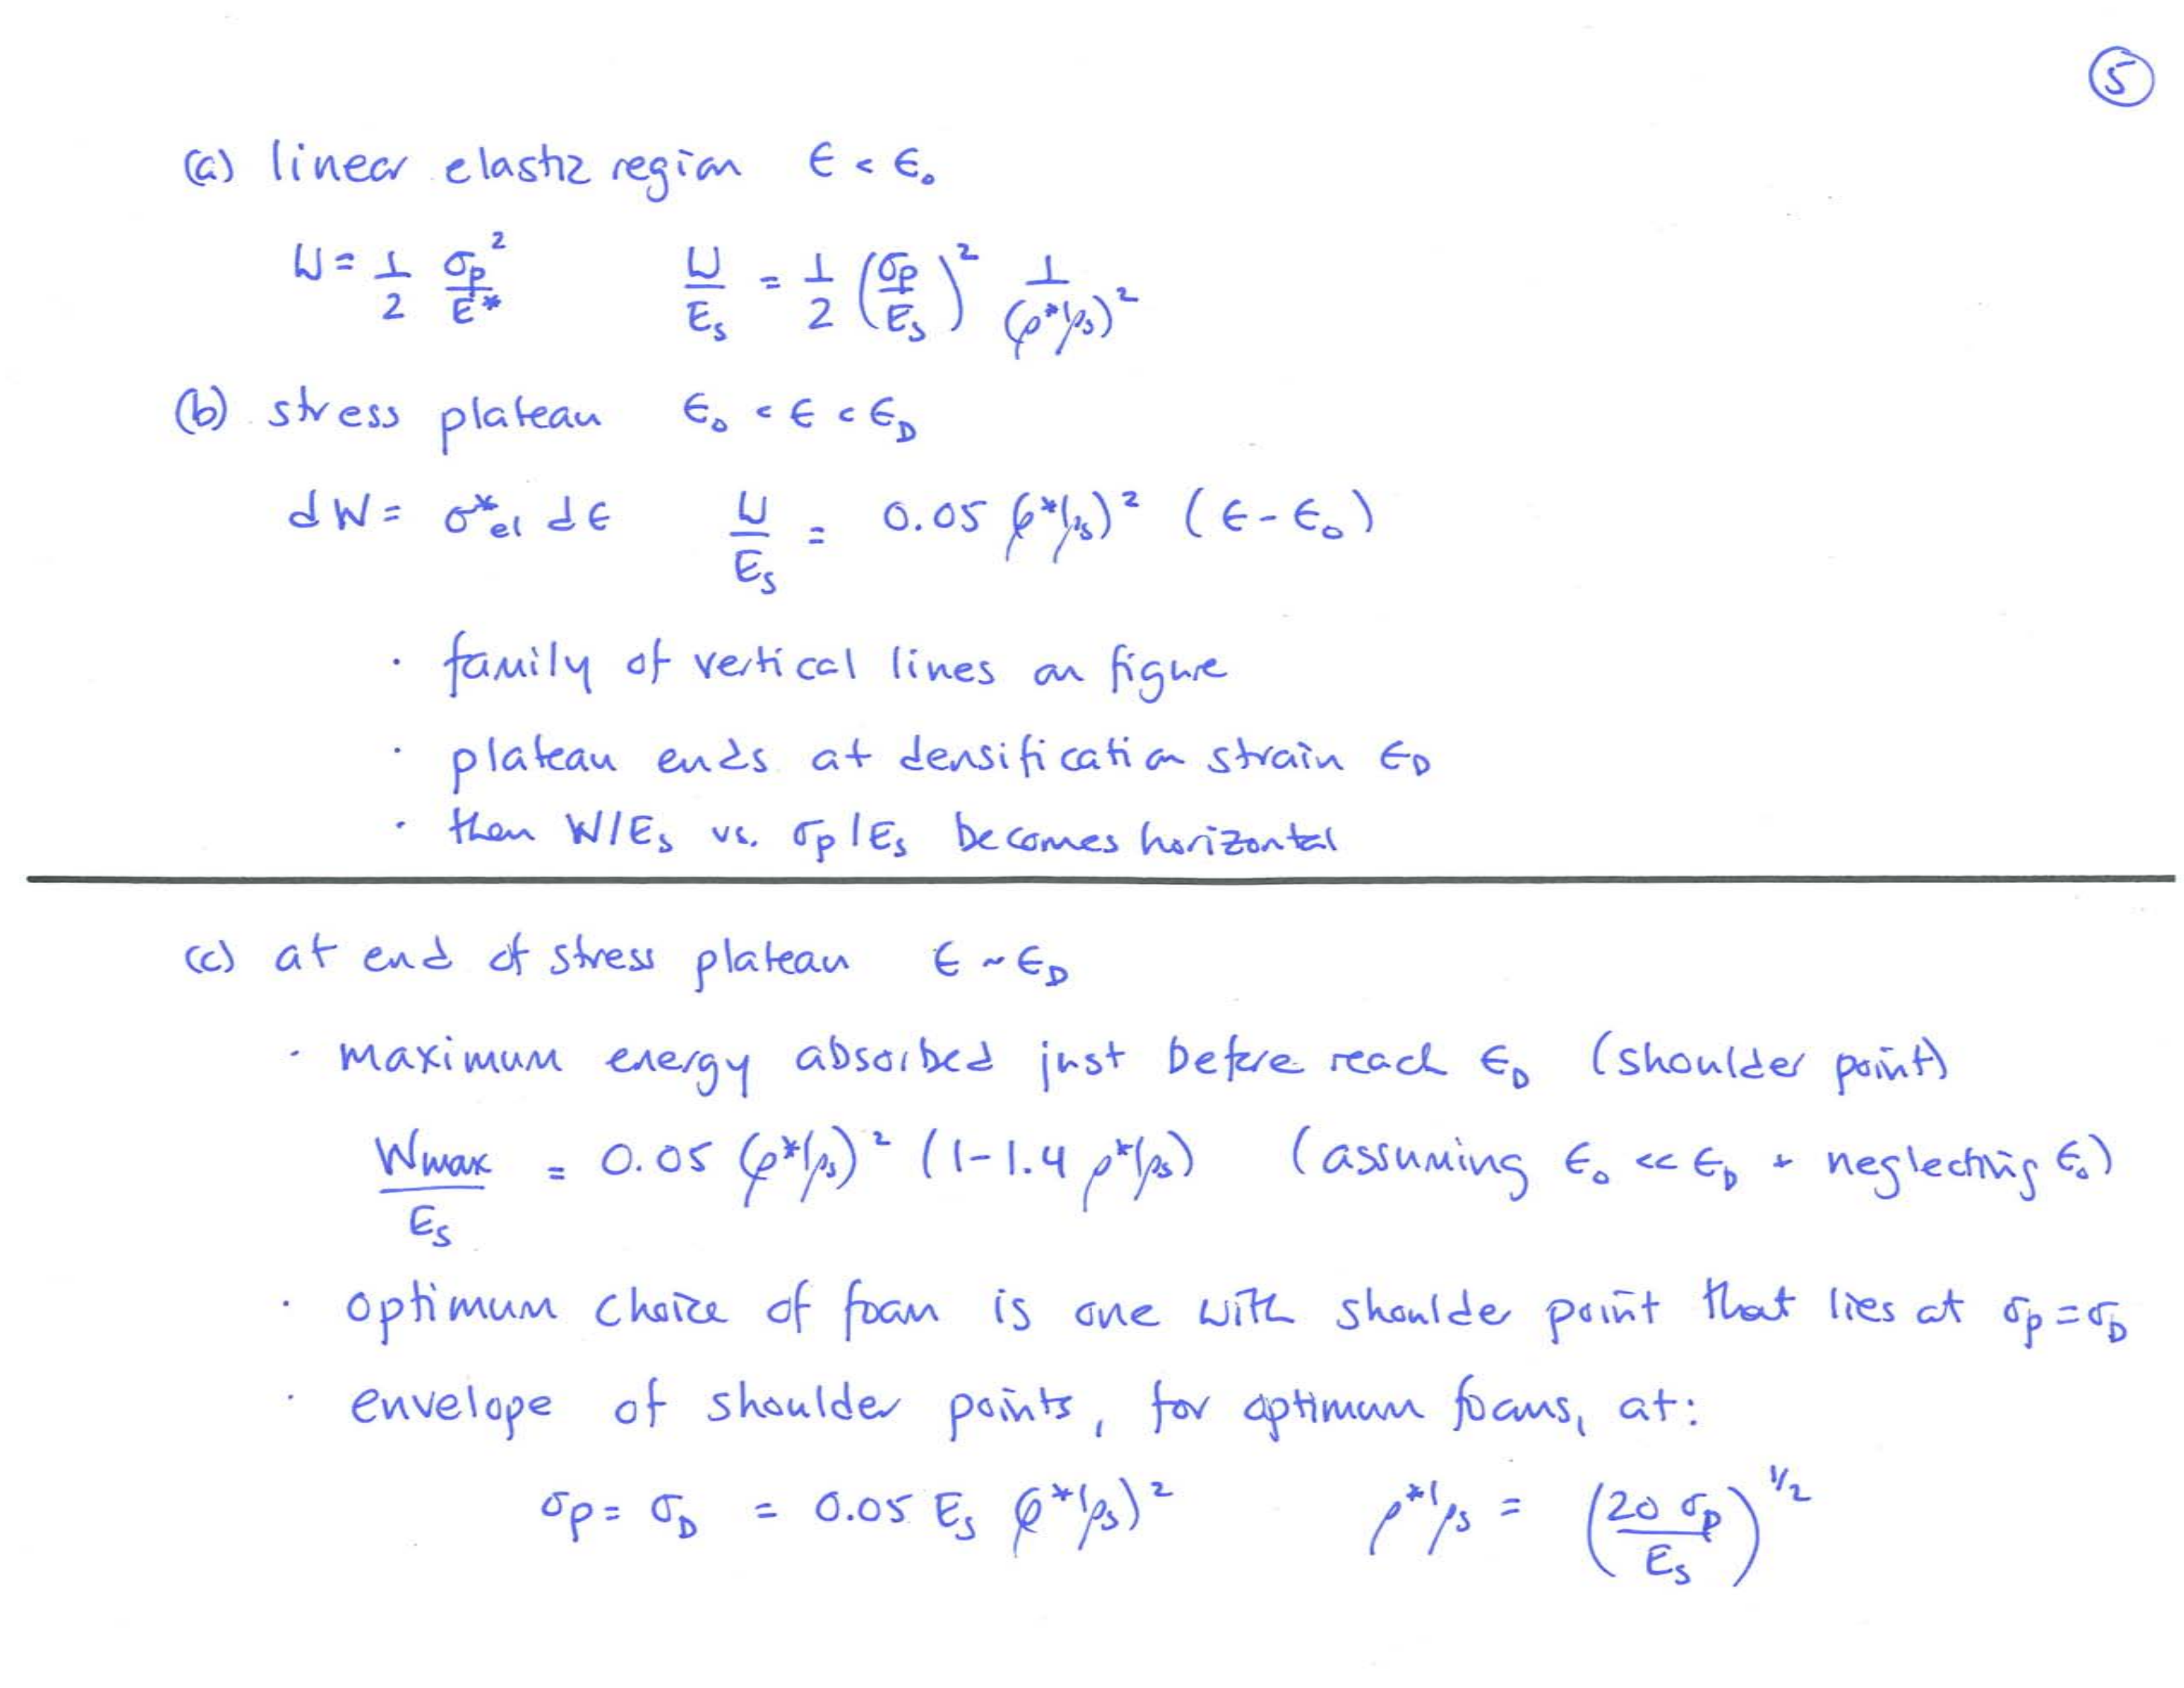 5
(a) linear elastic region ε < ε₀
W = 1/2 σp²/E* W/Es = 1/2 (σp/Es)² 1/(ρ*/ρs)²
(b) stress plateau ε₀ < ε < εD
dW = σ*el dε W/Es = 0.05 (ρ*/ρs)² (ε - ε₀)
· family of vertical lines on figure
· plateau ends at densification strain εD
· then W/Es vs. σp/Es becomes horizontal
(c) at end of stress plateau ε ~ εD
· maximum energy absorbed just before reach εD (shoulder point)
Wmax/Es = 0.05 (ρ*/ρs)² (1-1.4 ρ*/ρs) (assuming ε₀ << εD + neglecting ε₀)
· optimum choice of foam is one with shoulder point that lies at σp = σD
· envelope of shoulder points, for optimum foams, at:
σp = σD = 0.05 Es (ρ*/ρs)² ρ*/ρs = (20 σp/Es)^1/2